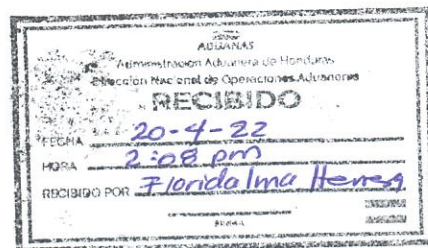 ADUANAS
Administración Aduanera de Honduras
Dirección Nacional de Operaciones Aduaneras
RECIBIDO
FECHA 20-4-22
HORA 2:08 pm
RECIBIDO POR Floridalma